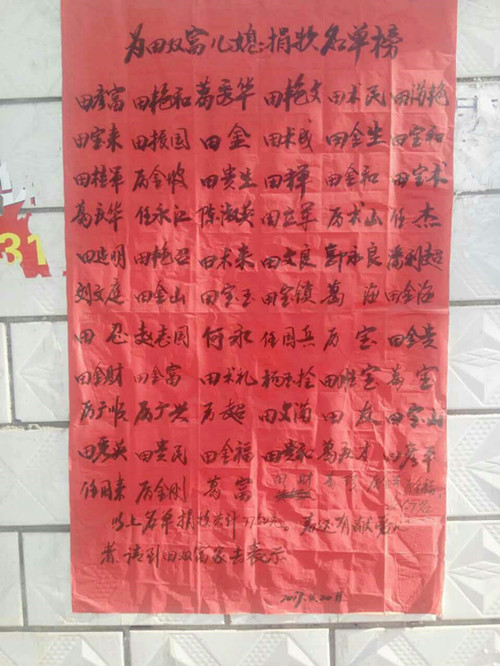 为田双富儿媳:捐款名单榜
田彦富 田艳和 葛秀华 田艳文 田术民 田满艳
田宝来 田振国 田金 田术成 田金生 田宝和
田桂军 厉金收 田贵生 田禅 田金和 田宝术
葛庆华 任永江 陈淑英 田立军 厉术山 任杰
田延明 田艳召 田术来 田文良 郭永良 潘利超
刘文庭 田金山 田宝玉 田宝镇 葛海 田金海
田忍 赵志国 何永 任国兵 厉宝 田金贵
田金财 田金富 田术礼 杨玉拴 田胜宝 葛宝
厉广收 厉广兴 厉超 田文满 田友 田宝山
田秀英 田贵民 田金福 田贵和 葛庆才 田彦平
任国来 厉金刚 葛富
以上名单捐款共计 元。若还有献爱心
者请到田双富家去表示